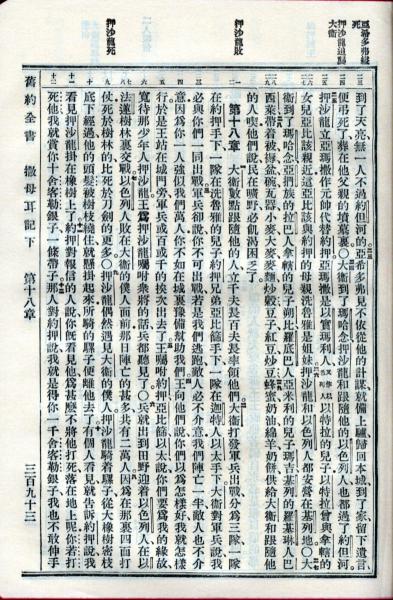 亞希多弗縊
死
押沙龍追趕
大衛
押沙龍敗
押沙龍死
到了天亮、無一人不過約但河的。亞希多弗見不依從他的計謀、就備上驢歸回本城到了家、留下遺言、
便弔死了、葬在他父親的墳墓裏。○大衛到了瑪哈念、押沙龍和跟隨他的以色列人也都過了約但河。
押沙龍立亞瑪撒作元帥代替約押、亞瑪撒是以實瑪利人又作以色列人以特拉的兒子、以特拉曾與拿轄的
女兒亞比該親近、這亞比該與約押的母親洗魯雅是姐妹。押沙龍和以色列人都安營在基列地。○大
衛到了瑪哈念、亞捫族的拉巴人拿轄的兒子朔比、羅底巴人亞米利的兒子瑪吉、基列的羅基琳人巴
西萊、帶着被褥盆碗瓦器小麥大麥麥麵炒穀豆子紅豆炒豆蜂蜜奶油綿羊奶餅供給大衛和跟隨他
的人喫、他們說民在曠野、必飢渴困乏了。
第十八章 大衛數點跟隨他的人、立千夫長百夫長率領他們。大衛打發軍兵出戰、分爲三隊、一隊
在約押手下、一隊在洗魯雅的兒子約押兄弟亞比篩手下、一隊在迦特人以太手下、大衛對軍兵說、我
必與你們一同出戰。軍兵卻說、你不可出戰、若是我們逃跑、敵人必不介意、我們陣亡一半、敵人也不介
意、因爲你一人強似我們萬人、你不如在城裏豫備幫助我們。王向他們說、你們以爲怎樣好、我就怎樣
行、於是王站在城門旁、軍兵或百或千的挨次出去了。王囑咐約押亞比篩以太說、你們要爲我的緣故
寬待那少年人押沙龍。王爲押沙龍囑咐衆將的話、兵都聽見了。○兵就出到田野迎着以色列人、在以
法蓮樹林裏交戰。以色列人敗在大衛的僕人面前、那日陣亡的甚多、共有二萬人。因爲在那裏四面打
仗、死於樹林的比死於刀劍的更多。○押沙龍偶然遇見大衛的僕人、押沙龍騎着騾子從大橡樹密枝
底下經過、他的頭髮被樹枝繞住、就懸掛起來、所騎的騾子便離他去了。有個人看見、就告訴約押說、我
看見押沙龍掛在橡樹上了。約押對報信的人說、你旣看見他、爲甚麼不將他打死落在地上呢、你若打
死他、我就賞你十舍客勒銀子一條帶子。那人對約押說、我就是得你一千舍客勒銀子、我也不敢伸手
舊約全書 撒母耳記下 第十八章 三百九十三